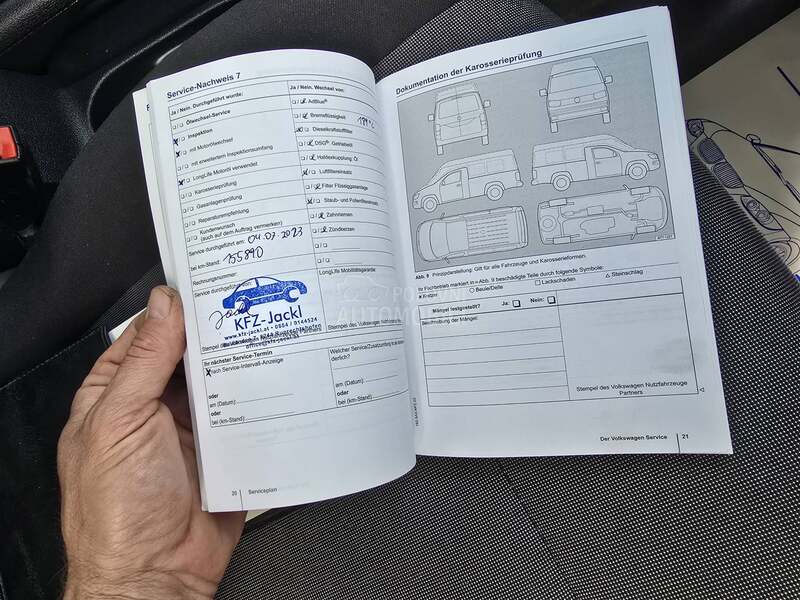 Service-Nachweis 7
Ja / Nein. Durchgeführt wurde:
Ölwechsel-Service
Inspektion
mit Motorölwechsel
mit erweitertem Inspektionsumfang
LongLife Motoröl verwendet
Karosserieprüfung
Gasanlagenprüfung
Reparaturempfehlung
Kundenwunsch
(auch auf dem Auftrag vermerken)
Service durchgeführt am: 04.07.2023
bei km-Stand: 155890
Rechnungsnummer:
Service durchgeführt von:
KFZ-Jackl
www.kfz-jackl.at - 0664 / 0144524
office@kfz-jackl.at
Ihr nächster Service-Termin
nach Service-Intervall-Anzeige
oder
am (Datum):
oder
bei (km-Stand):
20 Serviceplan
Ja / Nein. Wechsel von:
AdBlue®
Bremsflüssigkeit
Dieselkraftstofffilter
DSG®, Getriebeöl
Haldexkupplung Öl
Luftfiltereinsatz
Filter Flüssiggasanlage
Staub- und Pollenfiltereinsatz
Zahnriemen
Zündkerzen
LongLife Mobilitätsgarantie
Stempel des Volkswagen Nutzfahrzeuge
Welcher Service/Zusatzumfang ist erforderlich?
am (Datum):
bei (km-Stand):
Dokumentation der Karosserieprüfung
Abb. 9 Prinzipdarstellung: Gilt für alle Fahrzeuge und Karosserieformen.
Ihr Fachbetrieb markiert in ⇒Abb. 9 beschädigte Teile durch folgende Symbole:
Kratzer
Beule/Delle
Lackschaden
Steinschlag
Mängel festgestellt?
Ja:
Nein:
Beschreibung der Mängel:
Stempel des Volkswagen Nutzfahrzeuge
Partners
Der Volkswagen Service 21
POLOVNI
AUTOMOBILI